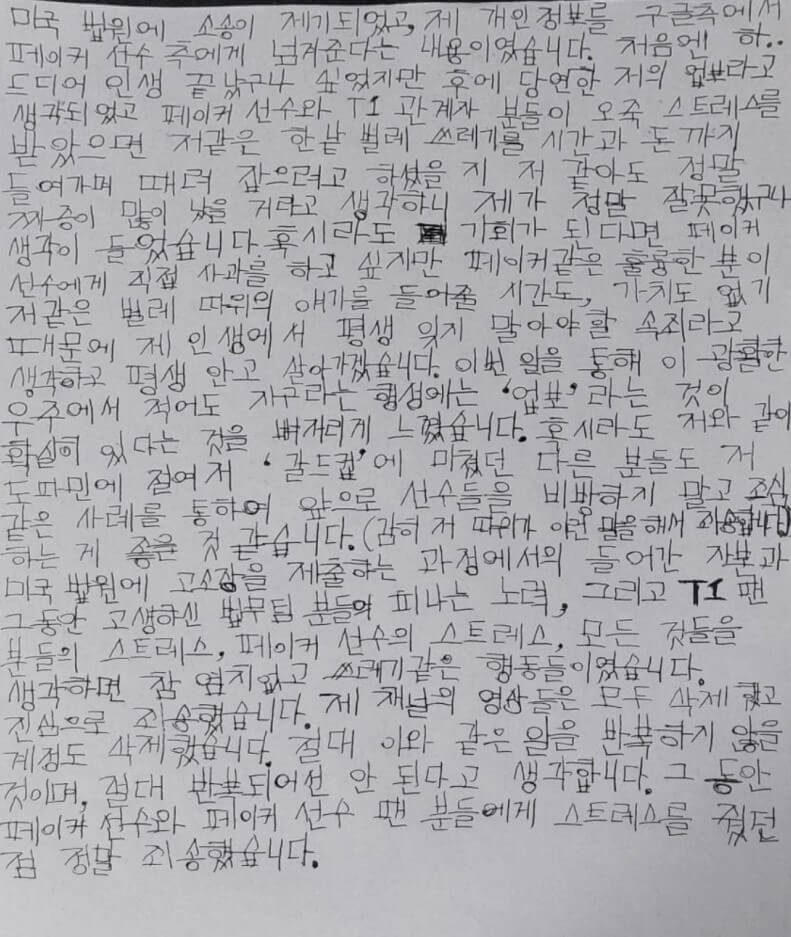 미국 법원에 소송이 제기되었고, 제 개인정보를 구글측에서
페이커 선수 측에게 넘겨준다는 내용이었습니다. 처음엔 하..
드디어 인생 끝났구나 싶었지만 후에 당연한 저의 업보라고
생각되었고 페이커 선수와 T1 관계자 분들이 오죽 스트레스를
받았으면 저같은 한낱 벌레 쓰레기를 시간과 돈 까지
들여가며 때려 잡으려고 하셨을 지 저 같아도 정말
짜증이 많이 났을 거라고 생각하니 제가 정말 잘못했구나
생각이 들었습니다. 혹시라도 기회가 된다면 페이커
선수에게 직접 사과를 하고 싶지만 페이커같은 훌륭한 분이
저같은 벌레 따위의 얘기를 들어줄 시간도, 가치도 없기
때문에 제 인생에서 평생 잊지 말아야할 속죄라고
생각하고 평생 안고 살아가겠습니다. 이번 일을 통해 이 광활한
우주에서 적어도 지구라는 행성에는 '업보'라는 것이
확실히 있다는 것을 뼈저리게 느꼈습니다. 혹시라도 저와 같이
도파민에 절여져 '골드컵'에 미쳤던 다른 분들도 저
같은 사례를 통하여 앞으로 선수들을 비방하지 말고 조심
하는 게 좋을 것 같습니다. (감히 저 따위가 이런 말을 해서 죄송합니다)
미국 법원에 고소장을 제출하는 과정에서의 들어간 자본과
그동안 고생하신 법무팀 분들의 피나는 노력, 그리고 T1 팬
분들의 스트레스, 페이커 선수의 스트레스, 모든 것들을
생각하면 참 염치없고 쓰레기같은 행동들이였습니다.
진심으로 죄송했습니다. 제 채널의 영상들은 모두 삭제했고
계정도 삭제했습니다. 절대 이와 같은 일을 반복하지 않을
것이며, 절대 반복되어선 안 된다고 생각합니다. 그 동안
페이커 선수와 페이커 선수 팬 분들에게 스트레스를 줬던
점 정말 죄송했습니다.